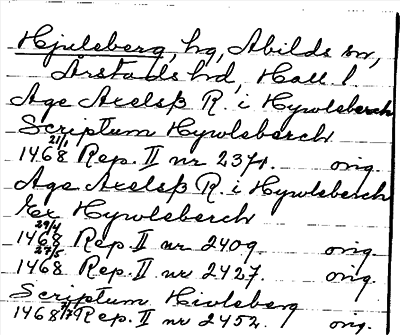 Hjuleberg, hg, Abilds sn,
Årstads hd, Hall. l.
Age Axelsß R. i Hywlsberch
Scriptum Hywlsberch
21/1 1468 Rep. II nr 2371. orig.
Age Axelsß R. i Hywlsberch
Ex Hywlsberch
29/4 1468 Rep. II nr 2409. orig.
27/5 1468 Rep. II nr 2427. orig.
Scriptum Hivlsberg
1468 Rep. II nr 2452. orig.